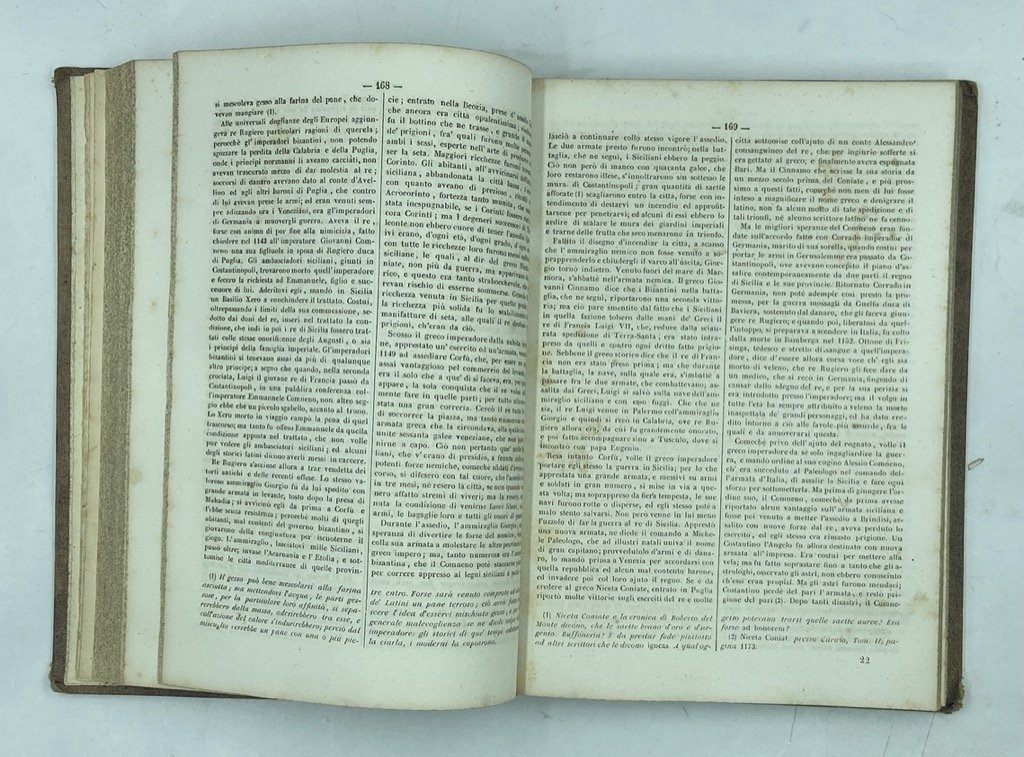 — 168 —
si mescolava gesso alla farina del pane, che do-
vevan mangiare (1).
Alle universali doglianze degli Europei aggiun-
geva re Rugiero particolari ragioni di querela;
perocchè gl'imperadori bizantini, non potendo
sgozzare la perdita della Calabria e della Puglia,
onde i principi normanni li aveano cacciati, non
avevan trascurato mezzo di dar molestia al re;
soccorsi di danaro avevan dato al conte d'Avel-
lino ed agli altri baroni di Puglia, che contro
di lui avevan prese le armi; ed eran venuti sem-
pre adizzando ora i Veneziani, ora gl'imperadori
di Germania a muovergli guerra. Aveva il re,
forse con animo di por fine alla nimicizia, fatto
chiedere nel 1143 all'imperatore Giovanni Com-
neno una sua figliuola in sposa di Rugiero duca
di Puglia. Gli ambasciadori siciliani, giunti in
Costantinopoli, trovarono morto quell'imperadore
e fecero la richiesta ad Emmanuele, figlio e suc-
cessore di lui. Aderitovi egli, mandò in Sicilia
un Basilio Xero a conchindere il trattato. Costui,
oltrepassando i limiti della sua commessione, se-
dotto dai doni del re, inserì nel trattato la con-
dizione, che indi in poi i re di Sicilia fossero trat-
tati colle stesse onorificenze degli Augusti, o sia
i principi della famiglia imperiale. Gl'imperadori
bizantini si tenevano assai da più di qualunque
altro principe; a segno che quando, nella seconda
cruciata, Luigi il giovane re di Francia passò da
Costantinopoli, in una pubblica conferenza col-
l'imperatore Emmanuele Comneno, non altro seg-
gio ebbe che un piccolo sgabello, accanto al trono.
Lo Xero morto in viaggio campò la pena di quel
trascorso; ma tanto fu offeso Emmanuele da quella
condizione apposta nel trattato, che non volle
pur vedere gli ambasciatori siciliani; ed alcuni
degli storici latini dicono averli messi in carcere.
Re Rugiero s'accinse allora a trar vendetta dei
torti antichi e delle recenti offese. Lo stesso va-
loroso ammiraglio Giorgio fu da lui spedito con
grande armata in levante, tosto dopo la presa di
Mahadia; si avviciò egli da prima a Corfù e
l'ebbe senza resistenza; perocchè molti di quegli
abitanti, mal contenti del governo bizantino, si
giovarono della congiuntura per iscuoterne il
giogo. L'ammiraglio, lasciatovi mille Siciliani,
passò oltre; invase l'Acarnania e l'Etolia, e sot-
tomise le città mediterranee di quelle provin-
(1) Il gesso può bene mescolarsi alla farina
asciutta; ma mettendovi l'acqua, le parti ges-
sose, per la particolare loro affinità, si sepa-
rerebbero dalla massa, odezirebbero tra esse, e
coll'azione del calore s'indurirebbero; perciò dal
miscuglio verrebbe un pane con una o più pie-
cie; entrato nella Beozia, prese d'assalto
che ancora era città opulentissima; ricchis
fu il bottino che ne trasse, e grande il
de' prigioni, fra' quali furono molte persone
ambi i sessi, esperte nell'arte di produrre e
ser la seta. Maggiori ricchezze furono
Corinto. Gli abitanti, all'avvicinarsi dell'
siciliana, abbandonata la città bassa, si
con quanto aveano di prezioso, ritratti
Acrocorinto, fortezza tanto munita, che
stata inespugnabile, se i Corinti fossero
cora Corinti; ma i degeneri successori di
leonte non ebbero cuore di tener l'assedio
ivi erano, d'ogni età, d'ogni grado, d'ogni
con tutte le ricchezze loro furono messi
siciliane, le quali, al dir del greco
niate, non più da guerra, ma apparivano
rico, e questo era tanto strabocchevole, che
revan rischio di esserne sommerse. Grande
ricchezza venuta in Sicilia per quelle
la ricchezza più solida fu lo stabilimento
manifatture di seta, alle quali il re destinò
prigioni, ch'eran da ciò.
Scosso il greco imperadore dalla subita
ne, apprestato un'esercito ed un'armata,
1149 ad assediare Corfù, che, per esser
assai vantaggioso pel commercio del levante,
era il solo che a que' dì si faceva, era, per
appare, la sola conquista che il re volea
mente fare in quelle parti; per tutto altrove
stata una gran correria. Cercò il re
di soccorrer la piazza, ma tanto numerosa
armata greca che la circondava, alla quale
unite sessanta galee veneziane, che non
nirne a capo. Ciò non pertanto que' mille
liani, che v'erano di presidio, a fronte delle
potenti forze nemiche, comechè sfidati
corso, si difesero con tal cuore, che l'assedio
in tre mesi, nè resero la città, se non quando
nero affatto stremi di viveri; ma la resero
nuta la condizione di venirne fuori liberi,
armi, le bagaglie loro e tutti gli onori di
Durante l'assedio, l'ammiraglio Giorgio,
speranza di divertire le forze del nemico,
colla sua armata a molestare le altre provincie
greco impero; ma, tanto numerosa era l'armata
bizantina, che il Comneno potè staccarne
per correre appresso ai legni siciliani e parte
tre entro. Forse sarà venuto compreso ad
de' Latini un pane terroso; ciò avrà fatto
scere l'idea d'esservi mischiato gesso; e per
generale malevoglienza se ne diede colpa
imperadore: gli storici di que' tempi
la ciarla, i moderni la copiarono.
— 169 —
lasciò a continuare collo stesso vigore l'assedio.
Le due armate presto furono incontro; nella bat-
taglia, che ne seguì, i Siciliani ebbero la peggio.
Ciò non però di manco con quaranta galee, che
loro restarono illese, s'innoltrarono sin sottesso le
mura di Costantinopoli; gran quantità di saette
affocate (1) scagliarono entro la città, forse con in-
tendimento di destarvi un incendio ed approfit-
tarsene per penetrarvi; ed alcuni di essi ebbero lo
ardire di scalare le mura dei giardini imperiali
e trarne delle frutta che seco menarono in trionfo.
Fallito il disegno d'incendiar la città, a scanso
che l'ammiraglio nemico non fosse venuto a so-
prapprenderlo e chiudergli il varco all'uscita, Gior-
gio tornò indietro. Venuto fuori del mare di Mar-
mora, s'abbattè nell'armata nemica. Il greco Gio-
vanni Cinnamo dice che i Bizantini nella batta-
glia, che ne seguì, riportarono una seconda vitto-
ria; ma ciò pare smentito dal fatto che i Siciliani
in quella fazione tolsero dalle mani de' Greci il
re di Francia Luigi VII, che, reduce dalla sciau-
rata spedizione di Terra-Santa, era stato intra-
preso da quelli e contro ogni dritto fatto prigio-
ne. Sebbene il greco storico dice che il re di Fran-
cia non era stato preso prima; ma che durante
la battaglia, la nave, sulla quale era, s'imbattè a
passare fra le due armate, che combattevano; as-
salita dai Greci, Luigi si salvò sulla nave dell'am-
miraglio siciliano e con esso fuggì. Che che ne
sia, il re Luigi venne in Palermo coll'ammiraglio
Giorgio e quindi si recò in Calabria, ove re Ru-
giero allora era, da cui fu grandemente onorato,
e poi fatto accompagnare sino a Tusculo, dove si
incontrò con papa Eugenio.
Resa intanto Corfù, volle il greco imperadore
portare egli stesso la guerra in Sicilia; per lo che
apprestata una grande armata, e messivi su armi
e soldati in gran numero, si mise in via a que-
sta volta; ma soprappreso da fiera tempesta, le sue
navi furono rotte o disperse, ed egli stesso potè a
malo stento salvarsi. Non però venne in lui meno
l'uzzolo di far la guerra al re di Sicilia. Apprestò
una nuova armata, ne diede il comando a Miche-
le Paleologo, che ad illustri natali univa il nome
di gran capitano; provvedutolo d'armi e di dana-
ro, lo mandò prima a Venezia per accordarsi con
quella repubblica ed alcun mal contento barone,
ed invadere poi col loro ajuto il regno. Se è da
credere al greco Niceta Coniate, entrato in Puglia
riportò molte vittorie sugli eserciti del re e molte
(1) Niceta Coniate e la cronica di Roberto del
Monte dicono, che le saette erano d'oro e d'ar-
gento. Buffoneria! È da prestar fede piuttosto
ad altri scrittori che le dicono igneas. A qual og-
città sottomise coll'ajuto di un conte Alessandro
consanguineo del re, che per ingiurie sofferte si
era gettato al greco; e finalmente aveva espugnata
Bari. Ma il Cinnamo che scrisse la sua storia da
un mezzo secolo prima del Coniate, e più pros-
simo a questi fatti, comechè non men di lui fosse
inteso a magnificare il nome greco e denigrare il
latino, non fa alcun motto di tale spedizione e di
tali trionfi, nè alcuno scrittore latino ne fa cenno.
Ma le migliori speranze del Comneno eran fon-
date sull'accordo fatto con Corrado imperador di
Germania, marito di sua sorella, quando costui per
portar le armi in Gerusalemme era passato da Co-
stantinopoli, ove avevano concepito il piano d'as-
salire contemporaneamente da due parti il regno
di Sicilia e le sue provincie. Ritornato Corrado in
Germania, non potè adempir così presto la pro-
messa, per la guerra mossagli da Guelfo duca di
Baviera, sostenuto dal danaro, che gli faceva giun-
gere re Rugiero; e quando poi, liberatosi da quel-
l'intoppo, si preparava a scendere in Italia, fu colto
dalla morte in Bamberga nel 1152. Ottone di Fri-
singa, tedesco e stretto di sangue a quell'impera-
dore, dice d'essere allora corsa voce ch' egli sia
morto di veleno, che re Rugiero gli fece dare da
un medico, che si recò in Germania, fingendo di
cansar dallo sdegno del re, e per la sua perizia si
era introdotto presso l'imperadore; ma il volgo in
tutte l'età ha sempre attribuito a veleno la morte
inaspettata de' grandi personaggi, ed ha dato cre-
dito intorno a ciò alle favole più assurde, fra le
quali è da annoverarsi questa.
Comechè privo dell'ajuto del cognato, volle il
greco imperadore da sè solo ingagliardire la guer-
ra, e mandò ordine al suo cugino Alessio Comneno,
ch' era succeduto al Paleologo nel comando del-
l'armata d'Italia, di assalir la Sicilia e fare ogni
sforzo per sottometterla. Ma prima di giungere l'or-
dine suo, il Comneno, comechè da prima avesse
riportato alcun vantaggio sull'armata siciliana e
fosse poi venuto a metter l'assedio a Brindisi, as-
salito con nuove forze dal re, aveva perduto lo
esercito, ed egli stesso era rimasto prigione. Un
Costantino l'Angelo fu allora destinato con nuova
armata all'impresa. Era costui per mettere alla
vela; ma fu fatto soprastare fino a tanto che gli a-
strologhi, osservato gli astri, non ebbero conosciuto
ch'essi eran propizi. Ma gli astri furono mendaci;
Costantino perdè del pari l'armata, e restò pri-
gione del pari (2). Dopo tanti disastri, il Comne-
getto potevano trarsi quelle saette auree? Era
forse ad honorem?
(2) Niceta Coniat. presso Caruso, Tom. II, pa-
gina 1173.
22